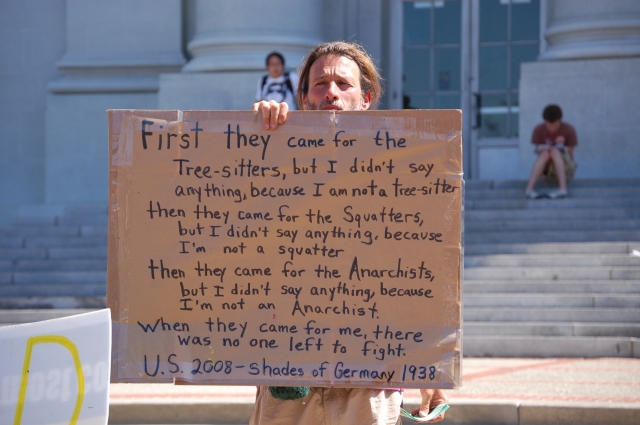 First they came for the
Tree-sitters, but I didn't say
anything, because I am not a tree-sitter
then they came for the Squatters,
but I didn't say anything, because
I'm not a squatter
then they came for the Anarchists,
but I didn't say anything, because
I'm not an Anarchist.
When they came for me, there
was no one left to fight.
U.S. 2008-shades of Germany 1938
D